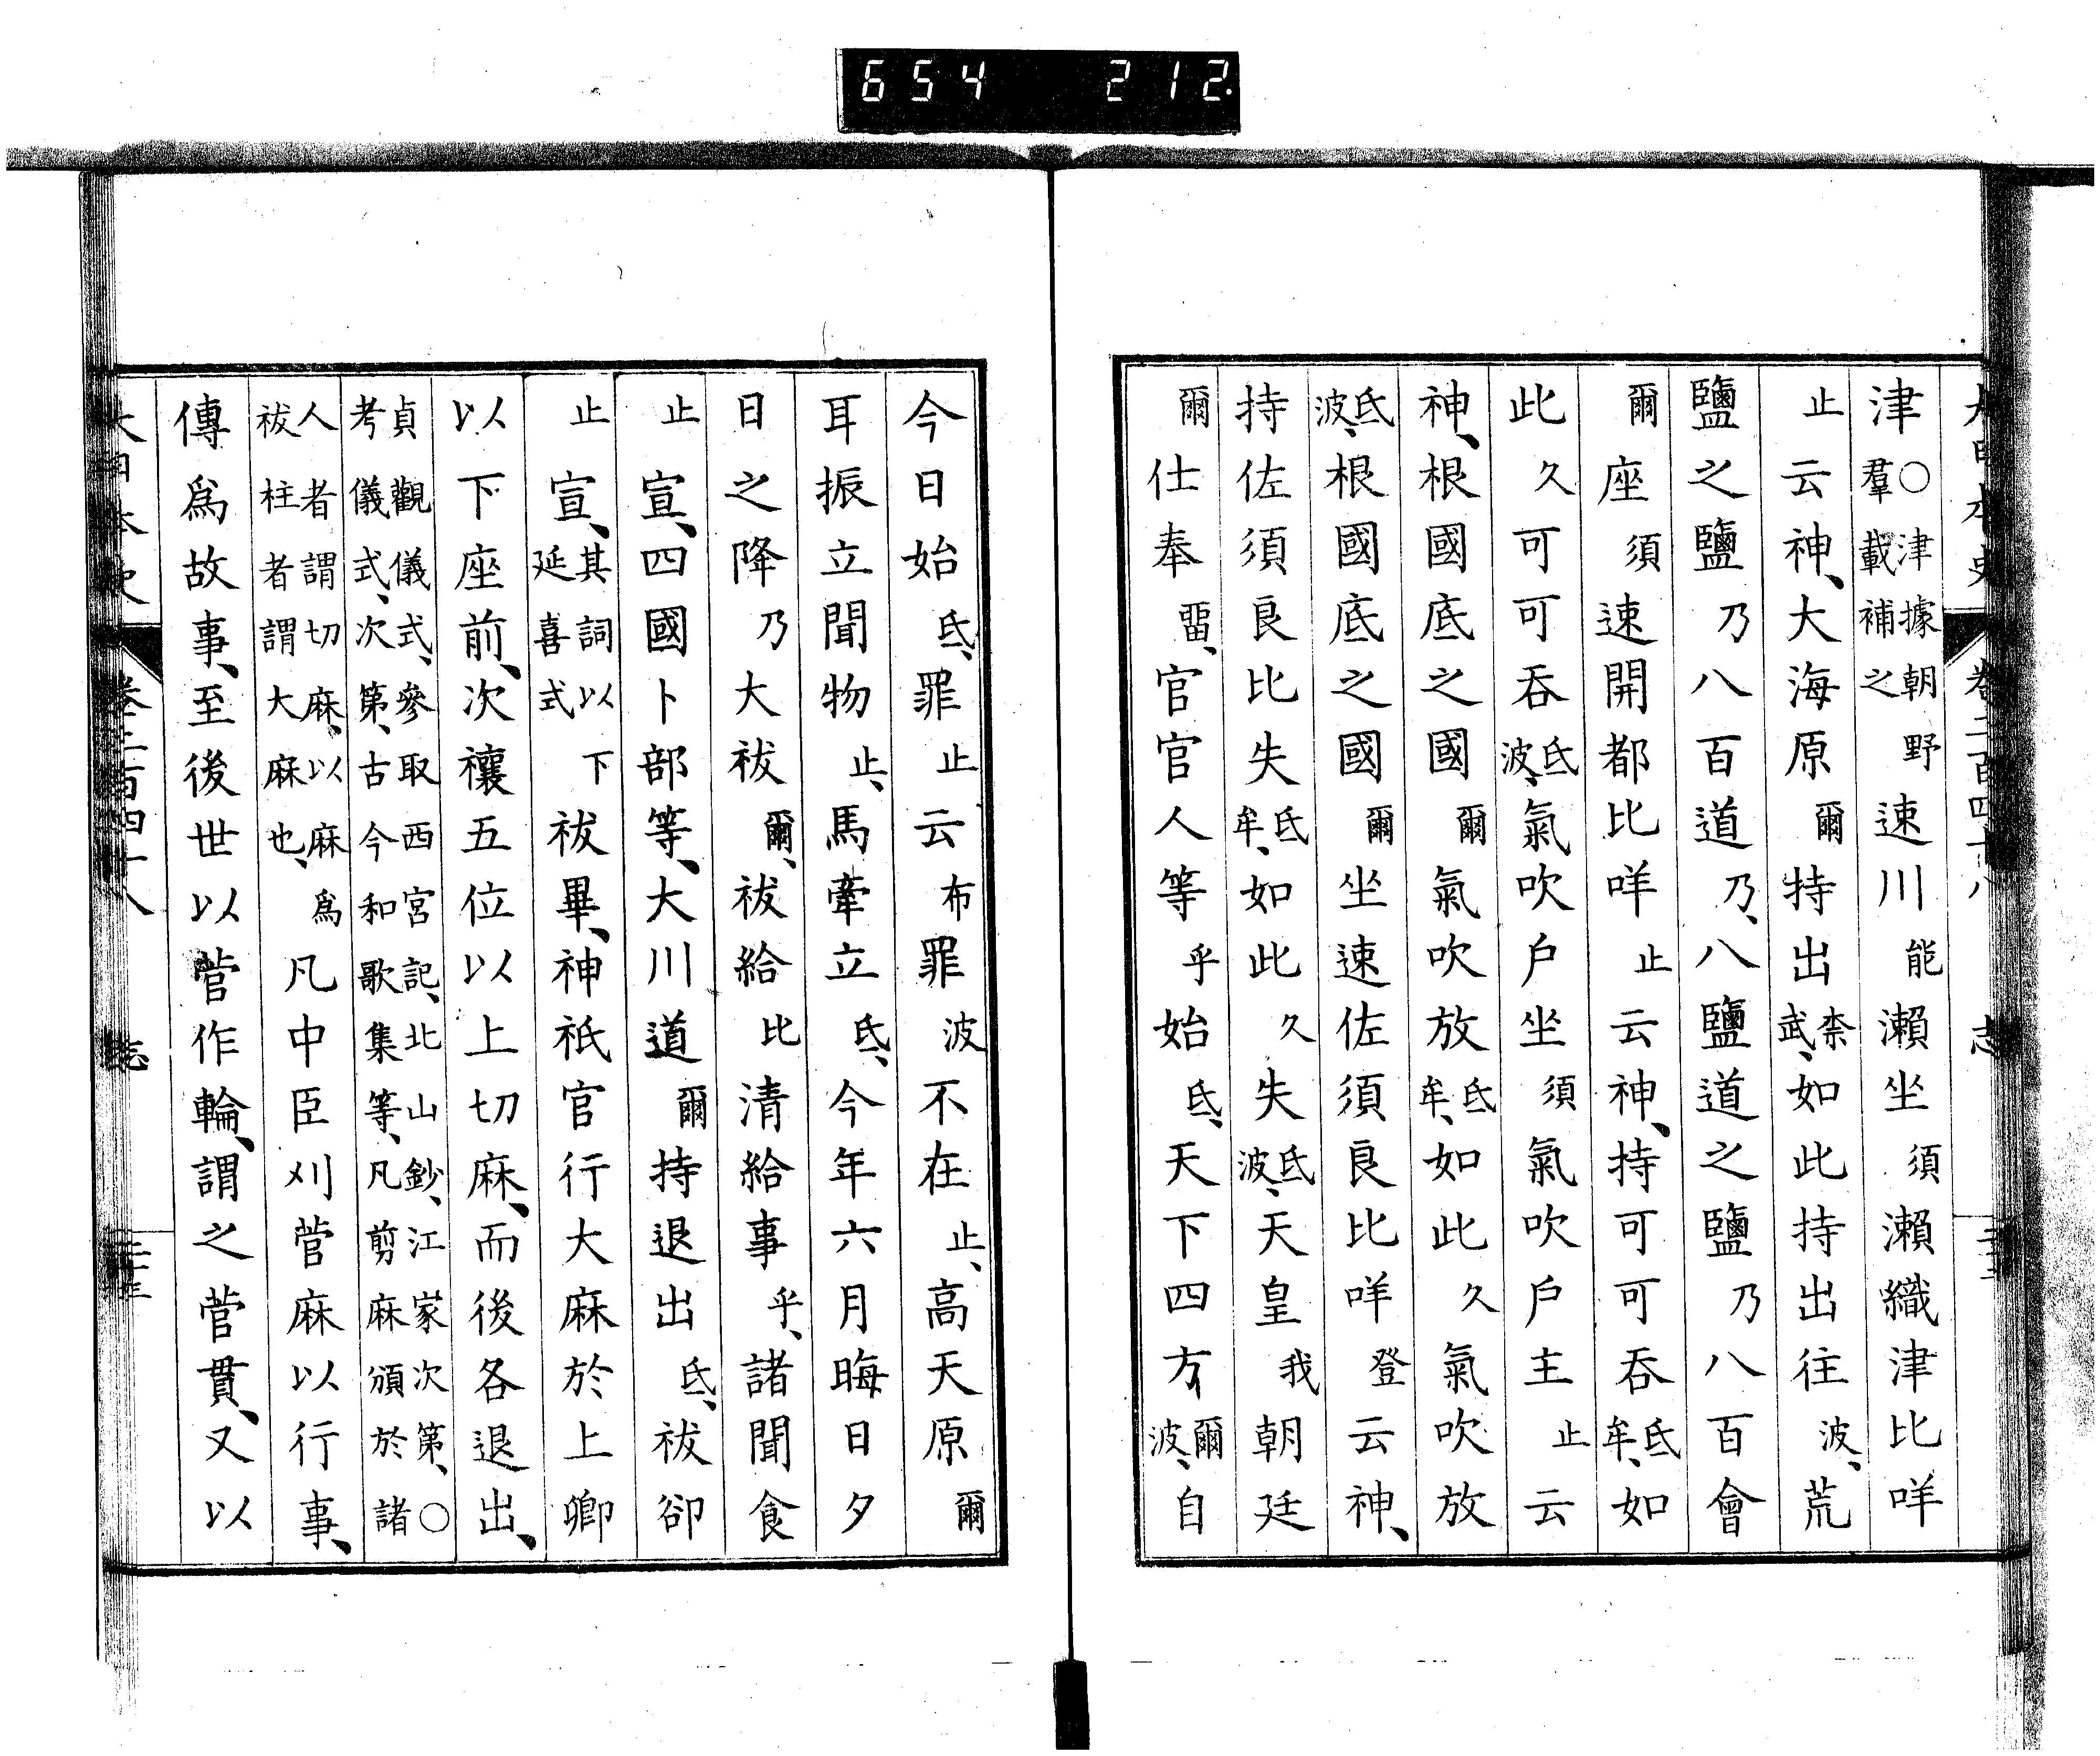 654 212.
大日本史 卷二百四十八 志
津〇津據朝野羣載補之速川能瀨坐須瀨織津比咩
止云神、大海原爾持出柰武、如此持出往波、荒
鹽之鹽乃八百道乃、八鹽道之鹽乃八百會
爾座須速開都比咩止云神、持可可吞氐牟、如
此久可可吞氐波、氣吹戶坐須氣吹戶主止云
神、根國底之國爾氣吹放氐牟、如此久氣吹放
氐波、根國底之國爾坐速佐須良比咩登云神、
持佐須良比失氐牟、如此久失氐波、天皇我朝廷
爾仕奉畱、官官人等乎始氐、天下四方爾波、自
今日始氐、罪止云布罪波不在止、高天原爾
耳振立聞物止、馬牽立氐、今年六月晦日夕
日之降乃大祓爾、祓給比清給事乎、諸聞食
止宣、四國卜部等、大川道爾持退出氐、祓卻
止宣、其詞以下延喜式祓畢、神祇官行大麻於上卿
以下座前、次禳五位以上切麻、而後各退出、
貞觀儀式、參取西宮記、北山鈔、江家次第、〇考儀式、次第、古今和歌集等、凡剪麻頒於諸
人者謂切麻、以麻爲祓柱者謂大麻也、凡中臣刈菅麻以行事、
傳爲故事、至後世以菅作輪、謂之菅貫、又以
大日本史 卷二百四十八 志